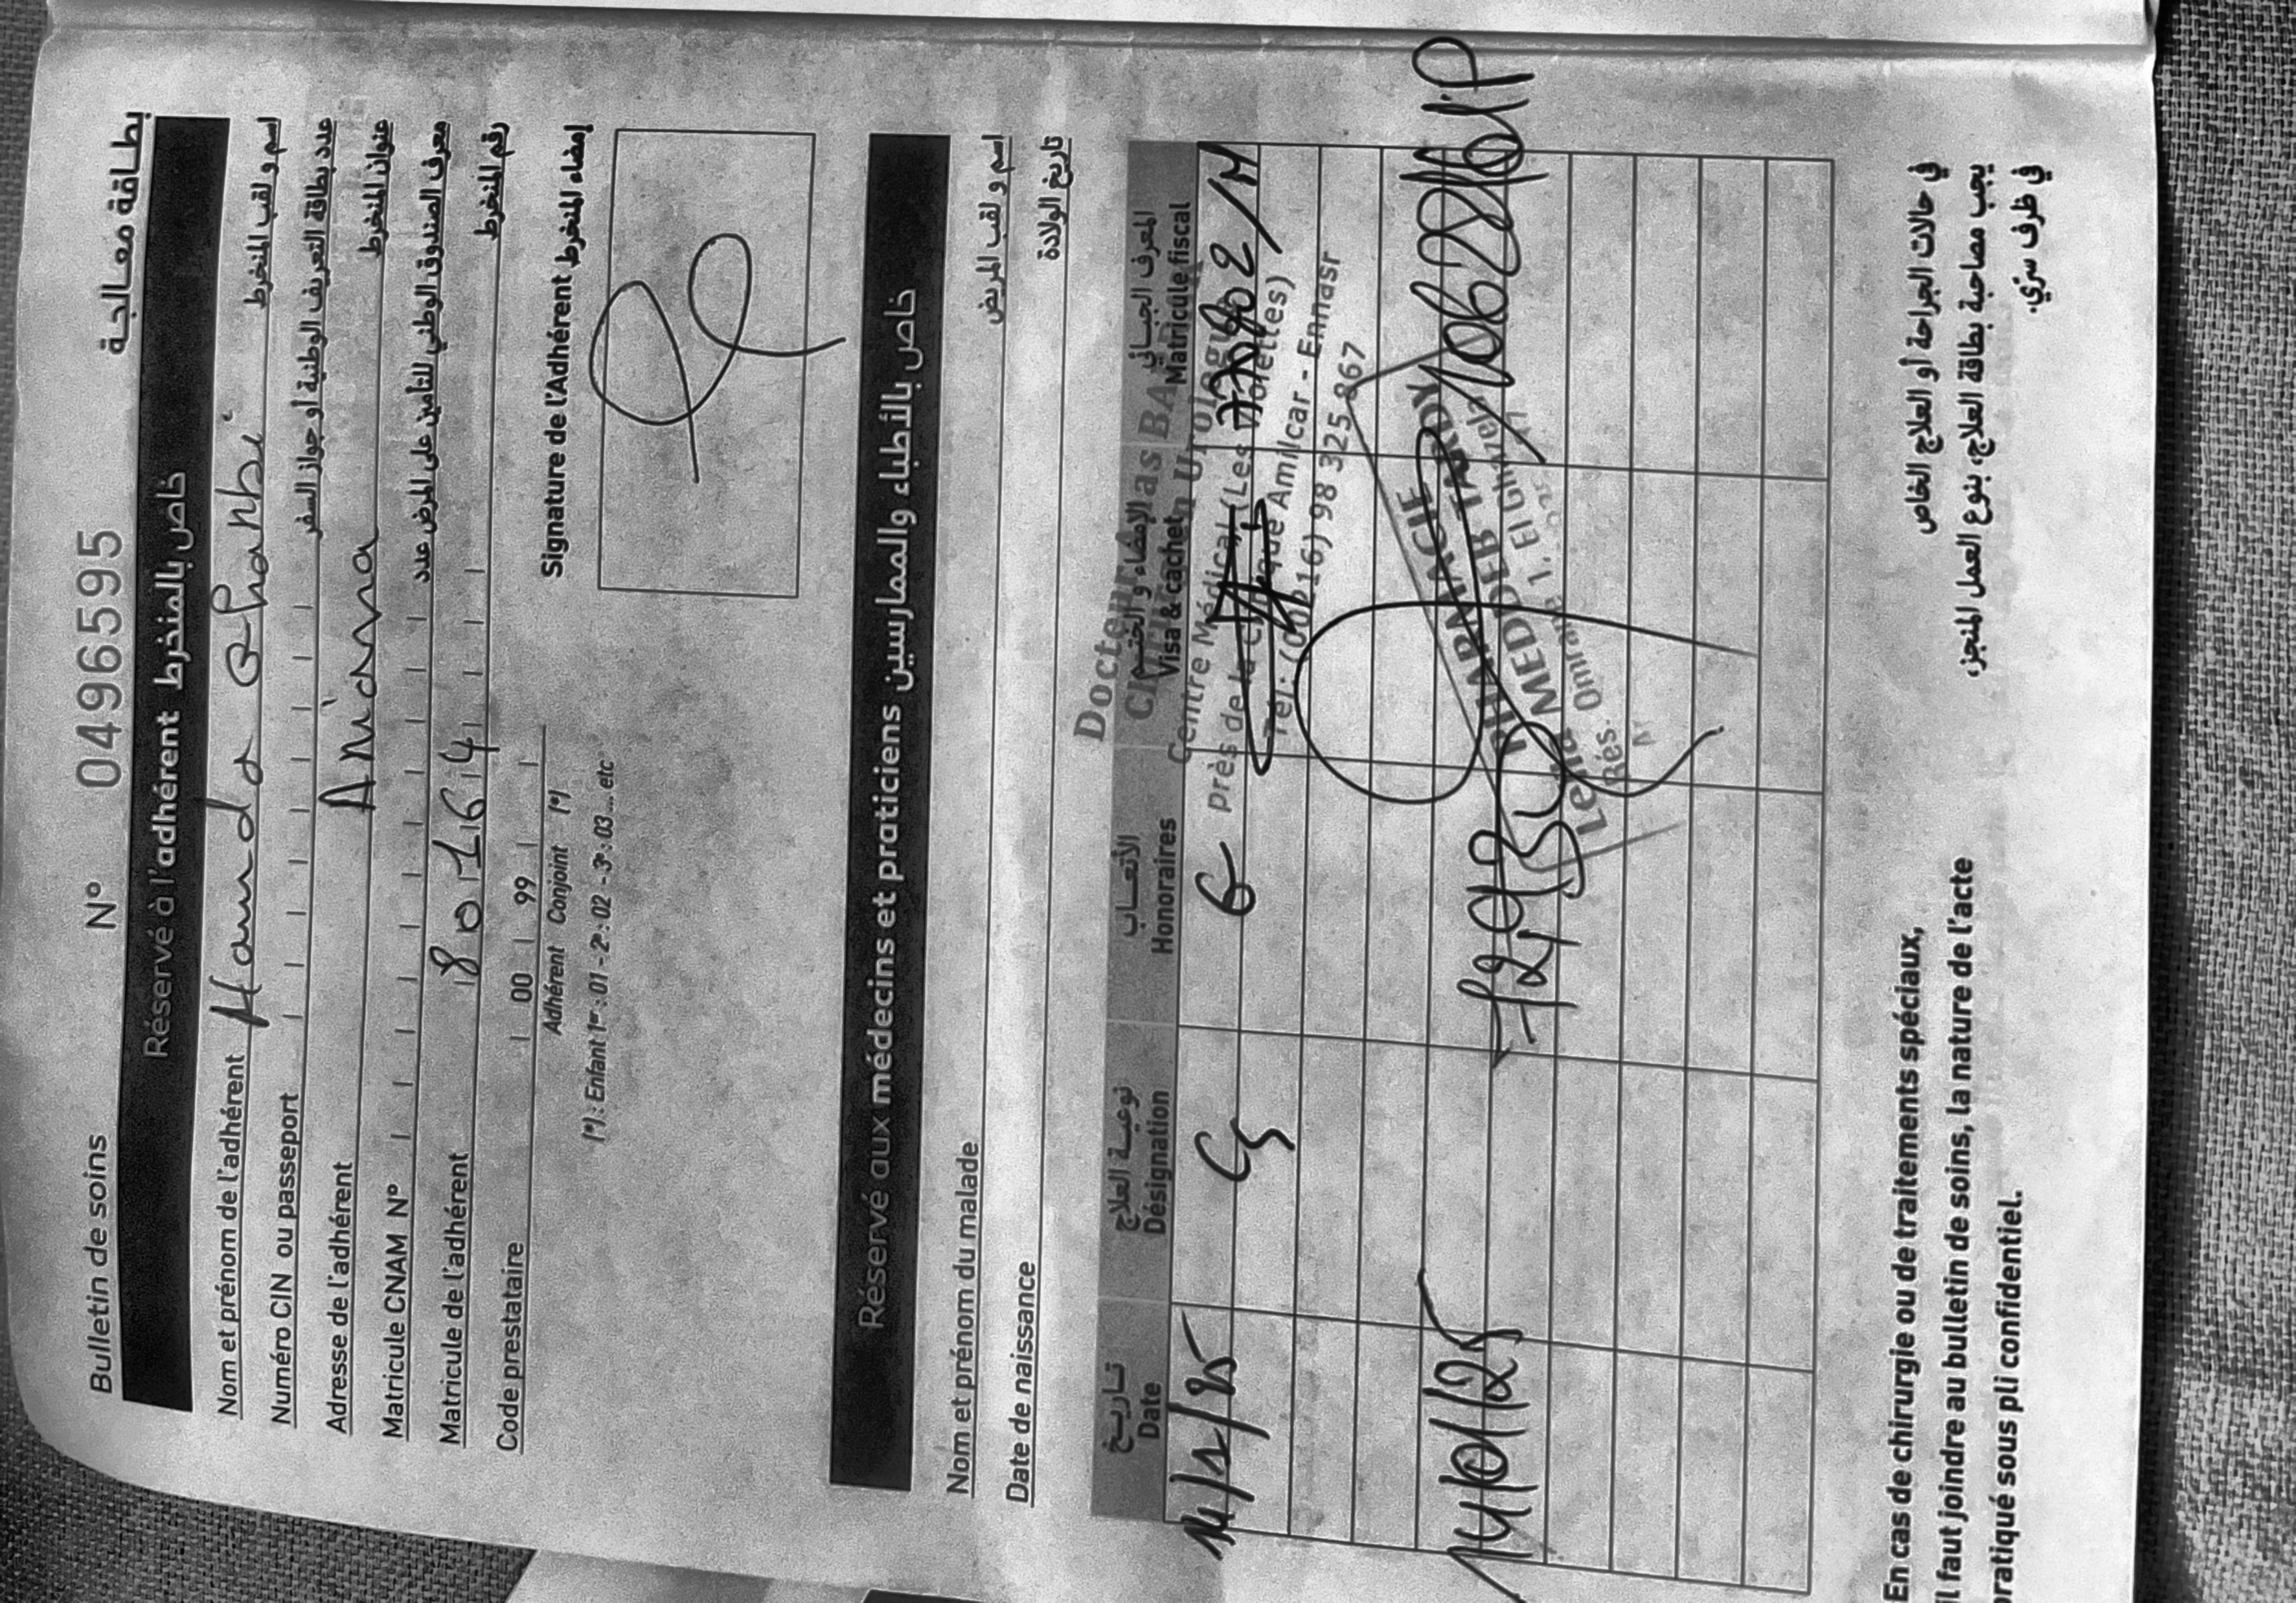 Bulletin de soins N° 0496595 بطاقة معالجة
Réservé à l'adhérent خاص بالمنخرط
Nom et prénom de l'adhérent اسم و لقب المنخرط
Numéro CIN ou passeport عدد بطاقة التعريف الوطنية أو جواز السفر
Adresse de l'adhérent Ariana عنوان المنخرط
Matricule CNAM N° معرف الصندوق الوطني للتأمين على المرض عدد
Matricule de l'adhérent 80164 رقم المنخرط
Code prestataire 00 99
Adhérent Conjoint (*)
(*) : Enfant 1er : 01 - 2e : 02 - 3e : 03... etc
Signature de l'Adhérent إمضاء المنخرط
Réservé aux médecins et praticiens خاص بالأطباء والممارسين
Nom et prénom du malade اسم و لقب المريض
Date de naissance تاريخ الولادة
تاريخ نوعية العلاج الأتعاب الإمضاء و الختم المعرف الجبائي
Date Désignation Honoraires Visa & cachet Matricule fiscal
Docteur
Centre Médical (Les Violettes)
près de la Clinique Amilcar - Ennasr
Tél: (00216) 98 325 867
14/1/25 Cs
PHARMACIE
MEDDEB TARDY
14/01/25
En cas de chirurgie ou de traitements spéciaux,
il faut joindre au bulletin de soins, la nature de l'acte
pratiqué sous pli confidentiel.
في حالات الجراحة أو العلاج الخاص
يجب مصاحبة بطاقة العلاج، بنوع العمل المنجز،
في ظرف سري.